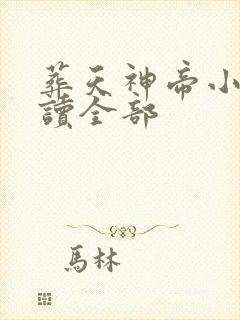 葬天神帝小
讀全部
馬林